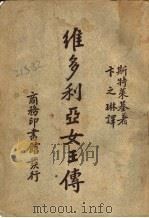 維多利亞女王傳
斯特萊基著
卞之琳譯
商務印書館發行